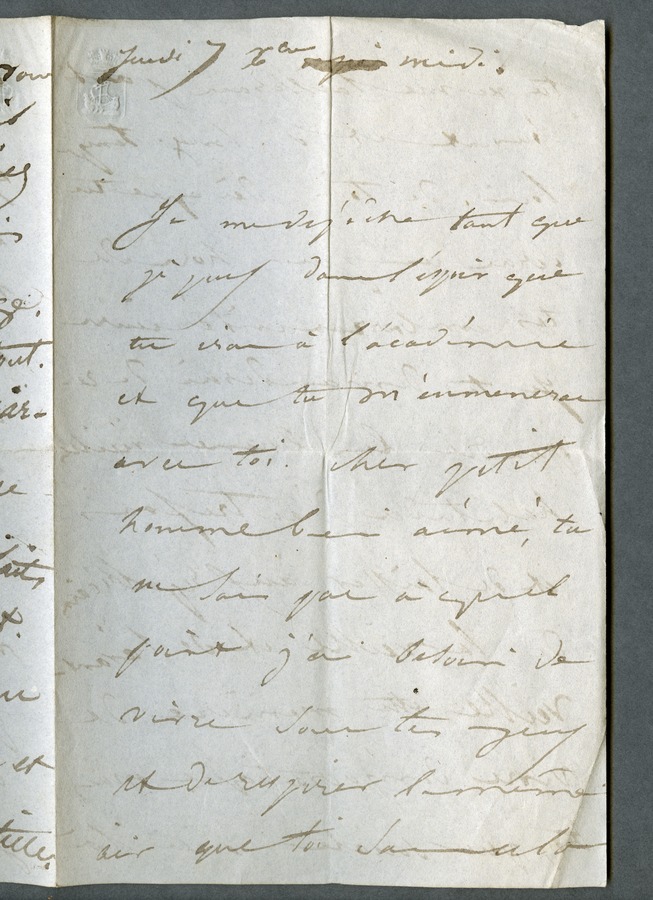 Jeudi 7 Xbre midi.
Je me dépêche tant que
je puis dans l'espoir que
tu iras à l'académie
et que tu m'emmeneras
avec toi. Cher petit
homme bien aimé, tu
ne sais pas à quel
point j'ai besoin de
vivre sous tes yeux
et de respirer le même
air que toi sans cela